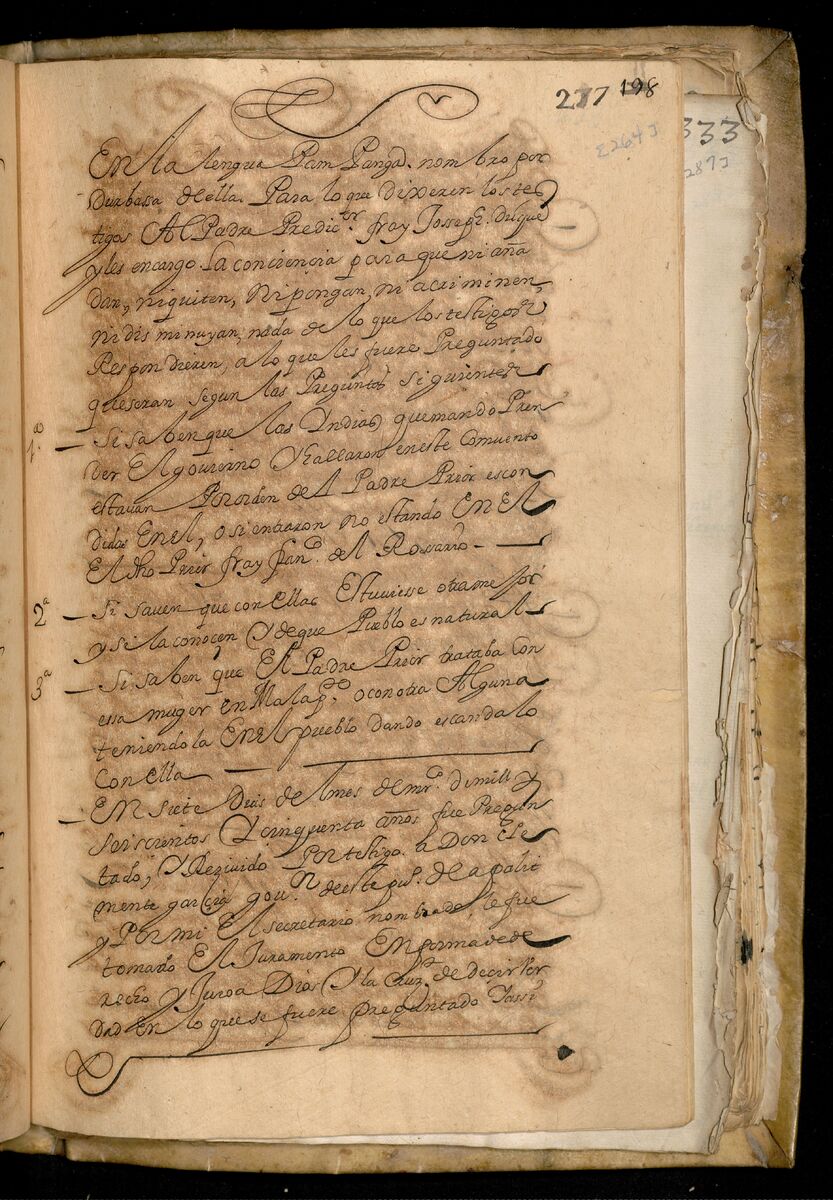 277 198
[264]
333
287]
En la lengua Pam Panga. nombro por
Durbasa de ella. Para lo que dixeren los tes
tigos Al Padre Predicor. fray Joseph. Duque
y les encargo. La conciencia para que ni aña
dan, ni quiten, Ni pongan, ni acriminen,
ni dis minuyan, nada de lo que los testigos
Respondieren, a lo que les fuere Preguntado
que seran segun las Preguntas siguientes
1a Si saben que las Yndias que mando Pren
der El gouierno Y hallaron en este Comuento
estauan Por orden de el Padre Prior escon
didas En el, o si entraron no estando En El
El dho Prior fray franco. del Rosario
2a Si sauen que con Ellas Estuuiesse otra
y si la conoçen Y de que Pueblo es natural
3a Si saben que El Padre Prior trataba con
essa muger en Mala o con otra Alguna
teniendola En el pueblo dando escandalo
Con ella
En siete Dias de el mes de de mill y
Seiscientos Y cinquenta años fue Pregun
tado, Y Rezivido Por testigo. a Don Cle
mente garçia gour. de este puo. de apalit
y Por mi El secretario nombrado, le fue
tomado El Juramento En forma de de
recho Y Juro a Dios Y la Cruz de deçir Ver
dad En lo que se fuere preguntado Y assi